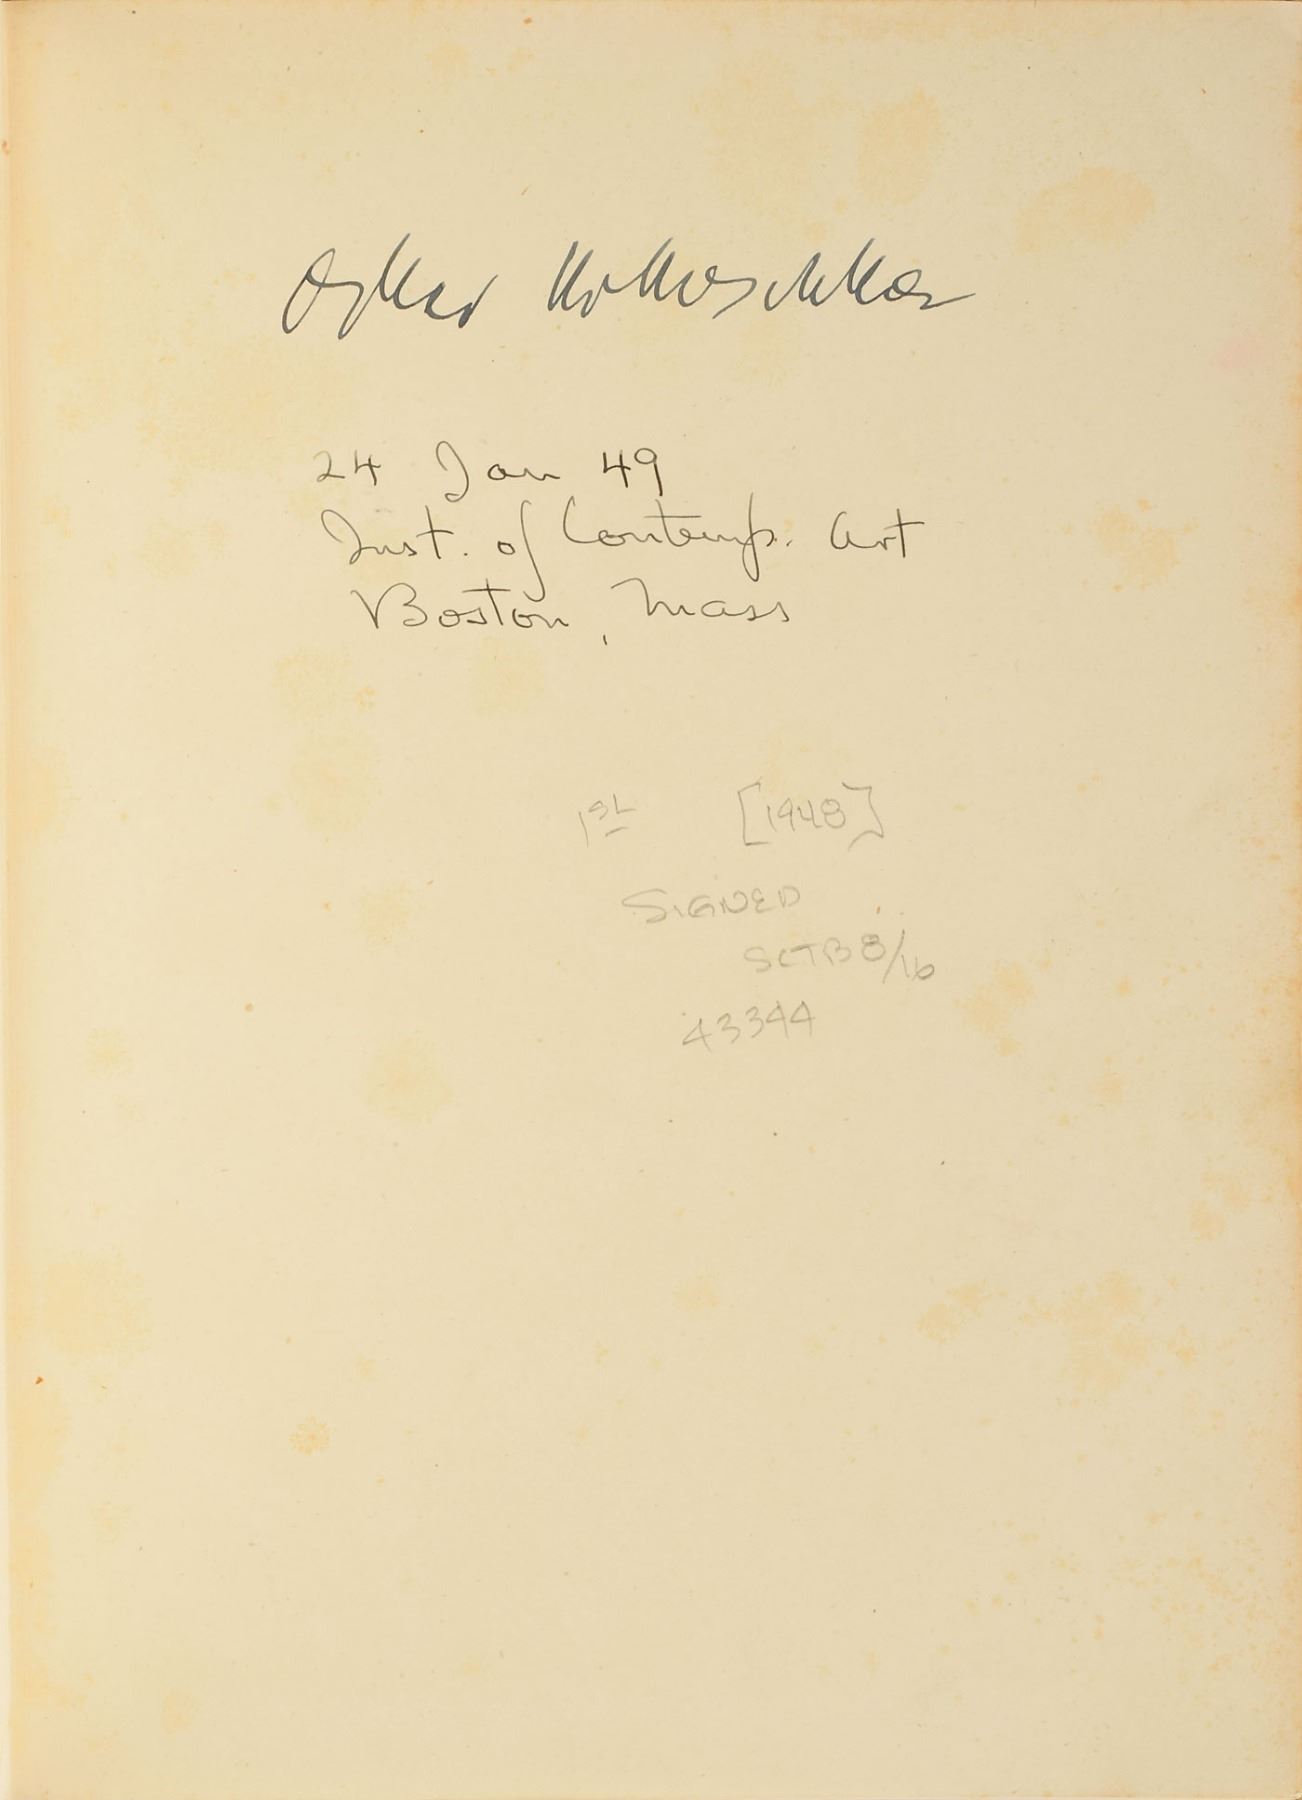 Oskar Kokoschka
24 Jan 49
Inst. of Contemp. Art
Boston, Mass
1st [1948]
SIGNED
SCTB 8/16
43344